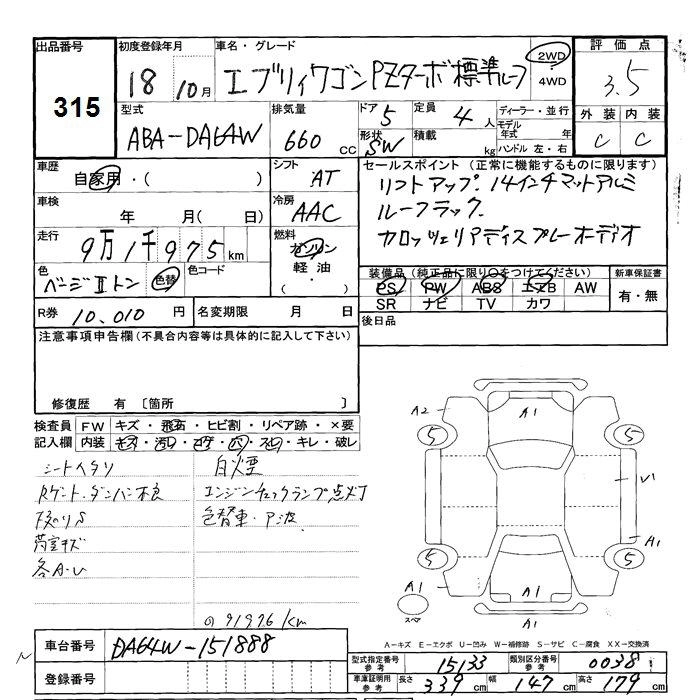 出品番号 初度登録年月 車名・グレード 評価点
315 18 10月 エブリィワゴン PZターボ標準ルーフ 2WD 4WD 3.5
型式 排気量 ドア 5 定員 4人 ディーラー・並行 外装 内装
ABA-DA64W 660 CC 形状 SW 積載 kg モデル年式 年 ハンドル 左・右 C C
車歴 自家用・( ) シフト AT セールスポイント (正常に機能するものに限ります)
リフトアップ. 14インチマットアルミ
車検 年 月( 日) 冷房 AAC ルーフラック.
走行 9万1千975km 燃料 ガソリン カロッツェリアディスプレーオーディオ
軽油 ( ・ )
色 ベージュIIトン 色替 色コード 装備品 (純正品に限り○をつけてください) 新車保証書
PS PW ABS エアB AW 有・無
SR ナビ TV カワ
R券 10,010 円 名変期限 月 日 後日品
注意事項申告欄 (不具合内容等は具体的に記入して下さい)
修復歴 有 〔箇所 〕
検査員 FW キズ・飛石・ヒビ割・リペア跡・×要
記入欄 内装 キズ・汚レ・コゲ・穴・スレ・キレ・破レ
シートヘタリ 白煙
Rゲート・ダンパー不良 エンジンチェックランプ点灯
色替車・
荷室キズ
各A・U
91976 km
A2 A1
5 5
V1
A1
5 5
A1 スペア A1
A1
A-キズ E-エクボ U-凹み W-補修跡 S-サビ C-腐食 XX-交換済
車台番号 DA64W-151888
登録番号
型式指定番号 参考 15133 類別区分番号 参考 0038
車庫証明用 参考 長さ 339 cm 幅 147 cm 高さ 179 cm